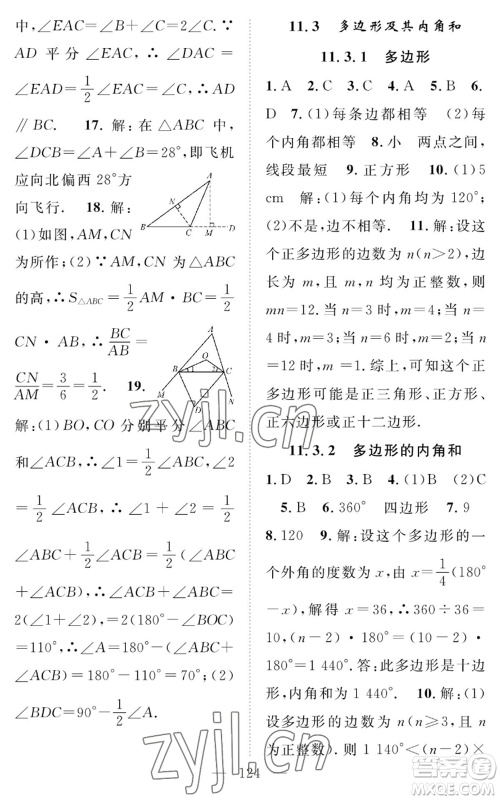 中,∠EAC=∠B+∠C. ∵
AD 平分 ∠EAC, ∴
∠EAD=1/2∠EAC=∠C. ∴AD
∥BC. 17. 解:在△ABC 中,
∠DCB=∠A+∠B=28°,即飞机
应向北偏西28°方
向飞行. 18. 解:
(1)如图,AM,CN
为所作;(2)∵AM,CN 为△ABC
的高,∴S△ABC=1/2AM·BC=1/2
CN·AB, ∴BC/AB=
CN/AM=3/6=1/2. 19.
解:(1)BO,CO 分别平分∠ABC
和∠ACB,∴∠1=1/2∠ABC,∠2
=1/2∠ACB, ∴∠1+∠2=1/2
∠ABC+1/2∠ACB=1/2(∠ABC
+∠ACB), ∴∠ABC+∠ACB
=2(∠1+∠2)=2(180°-∠BOC)
=110°,∴∠A=180°-(∠ABC+
∠ACB)=180°-110°=70°;(2)
∠BDC=90°-1/2∠A.
A
N
B
C
M
D
A
O
B
1
2
C
D
11.3 多边形及其内角和
11.3.1 多边形
1.A 2.B 3.C 4.A 5.B 6.
D 7.(1)每条边都相等 (2)每
个内角都相等 8.小 两点之间,
线段最短 9.正方形 10.(1)5
cm 解:(1)各内角均为 120°;
(2)不是,内角不等. 11.解:设这
个正多边形的边数为n(n>2),边
长为 m,且 m,n 均为正整数,则
mn=12.当 n=3 时,m=4,当 n=
4 时,m=3,当 n=6 时,m=2,当
n=12 时,m=1.综上,可知这个正
多边形可能是正三角形、正方形、
正六边形或正十二边形.
11.3.2 多边形的内角和
1.D 2.B 3.B 4.(1)B (2)C
5.B 6.360° 四边形 7.9
8.120 9.解:设这个多边形的每
个外角的度数为x,由 x=1/4(180°
-x),解得 x=36,∴360÷36=
10.∴(n-2)·180°=(10-2)·
180°=1 440°.答:此多边形是十边
形,内角和为1 440°. 10.解:(1)
设多边形的边数为n(n≥3,且 n
为正整数).则1 140°<(n-2)×
124
zyjl.cn
zyjl.cn